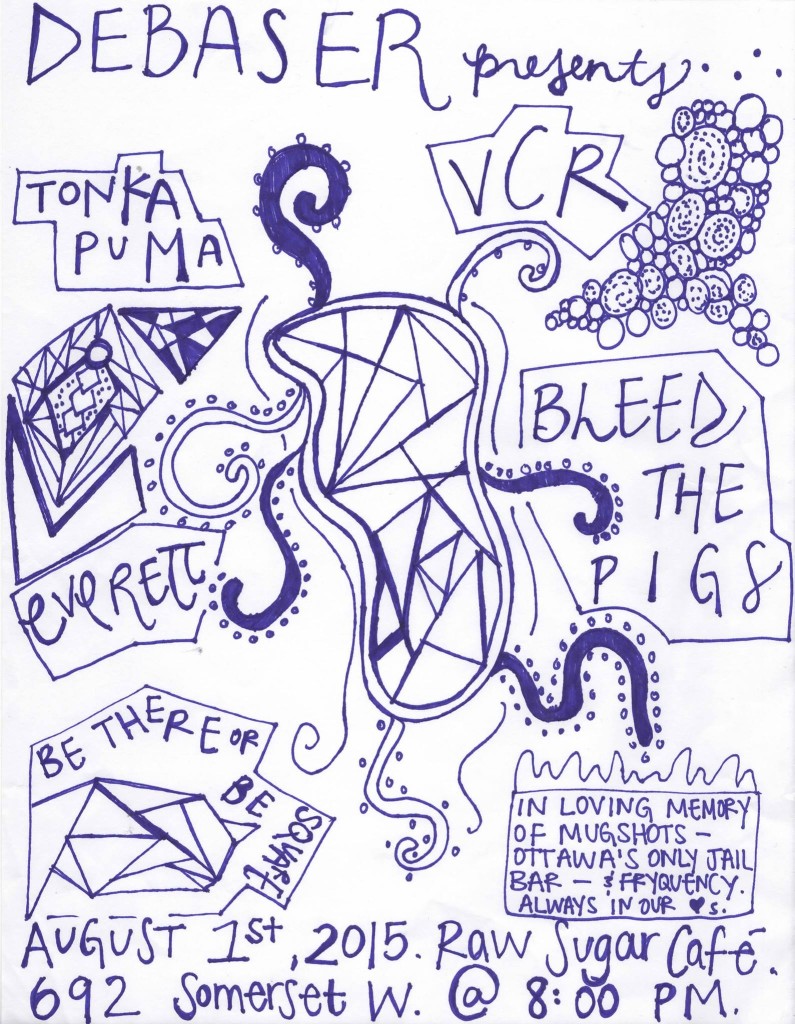 DEBASER presents...
TONKA
PUMA
VCR
BLEED
THE
PIGS
EVERETT
BE THERE OR
BE
SQUARE
IN LOVING MEMORY
OF MUGSHOTS —
OTTAWA'S ONLY JAIL
BAR — & FRYQUENCY.
ALWAYS IN OUR ♥s.
AUGUST 1st, 2015. Raw Sugar Café.
692 Somerset W. @ 8:00 PM.